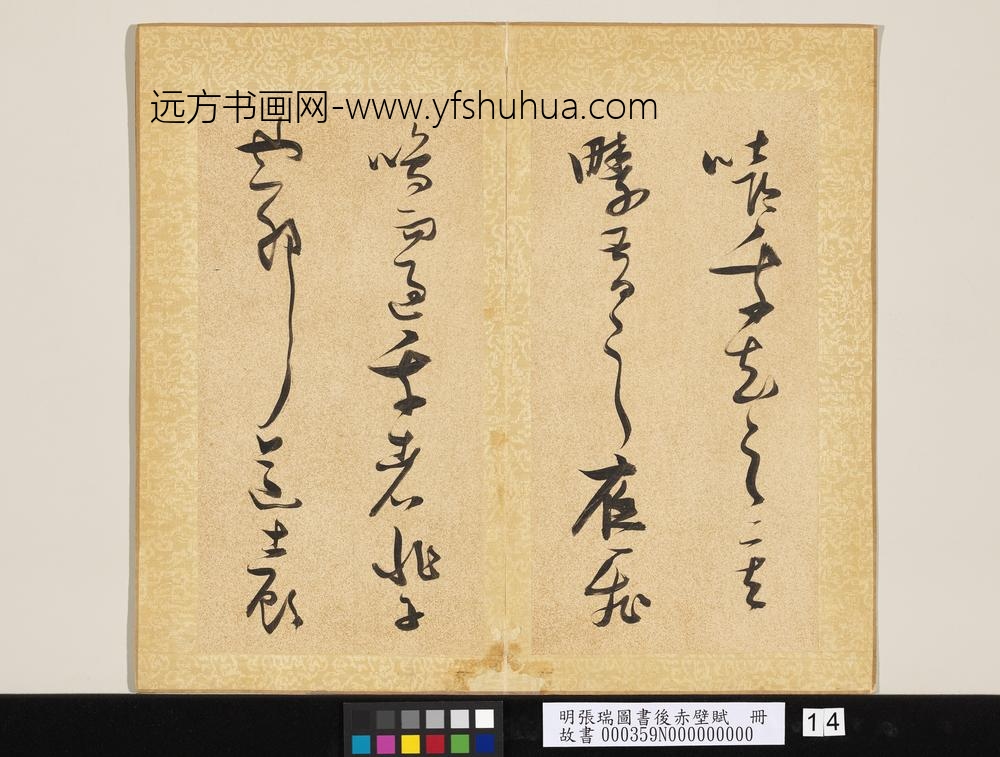 远方书画网-www.yfshuhua.com
嘻我知之矣
疇昔之夜飛
鳴而過我者非子
也耶道士顧
明張瑞圖書後赤壁賦 冊
故書000359N000000000
14